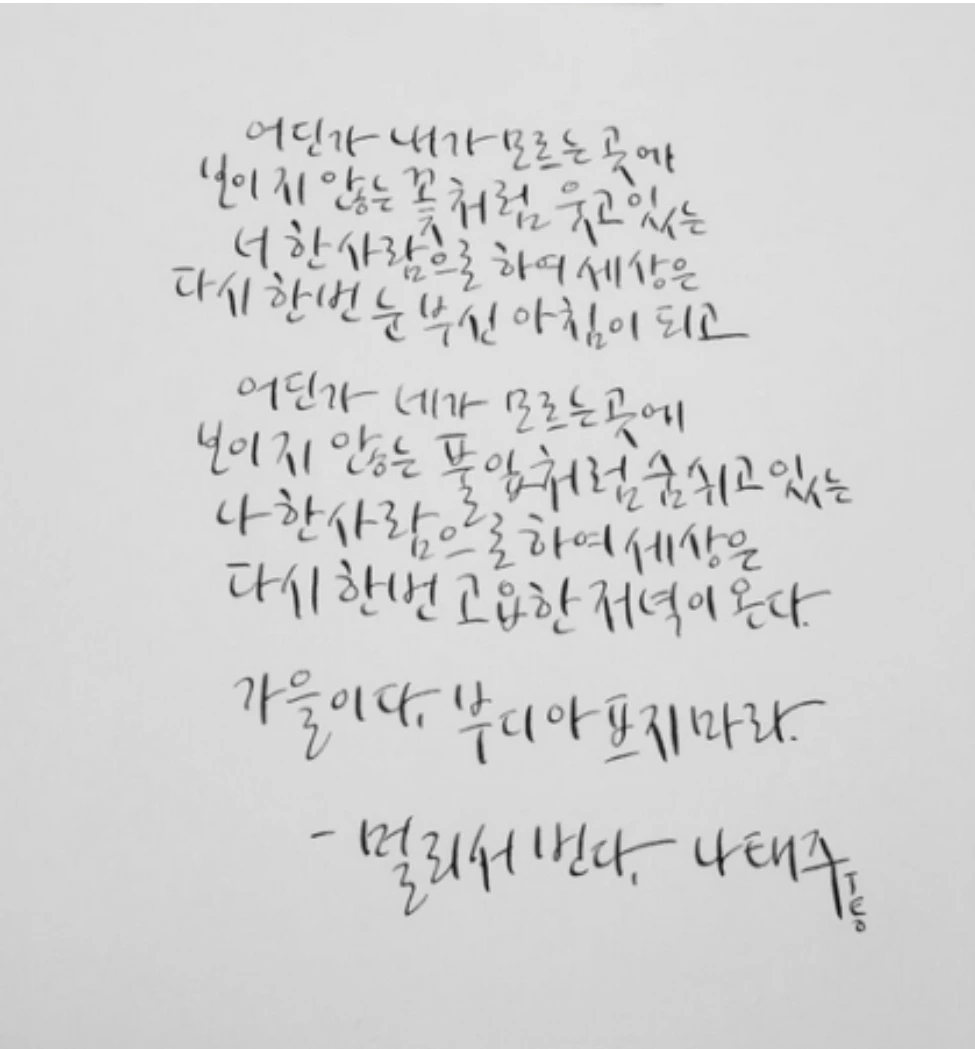 어딘가 내가 모르는 곳에
보이지 않는 꽃처럼 웃고 있는
너 한 사람으로 하여 세상은
다시 한번 눈부신 아침이 되고
어딘가 네가 모르는 곳에
보이지 않는 풀잎처럼 숨쉬고 있는
나 한 사람으로 하여 세상은
다시 한번 고요한 저녁이 온다.
가을이다, 부디 아프지 마라.
- 멀리서 빈다, 나태주